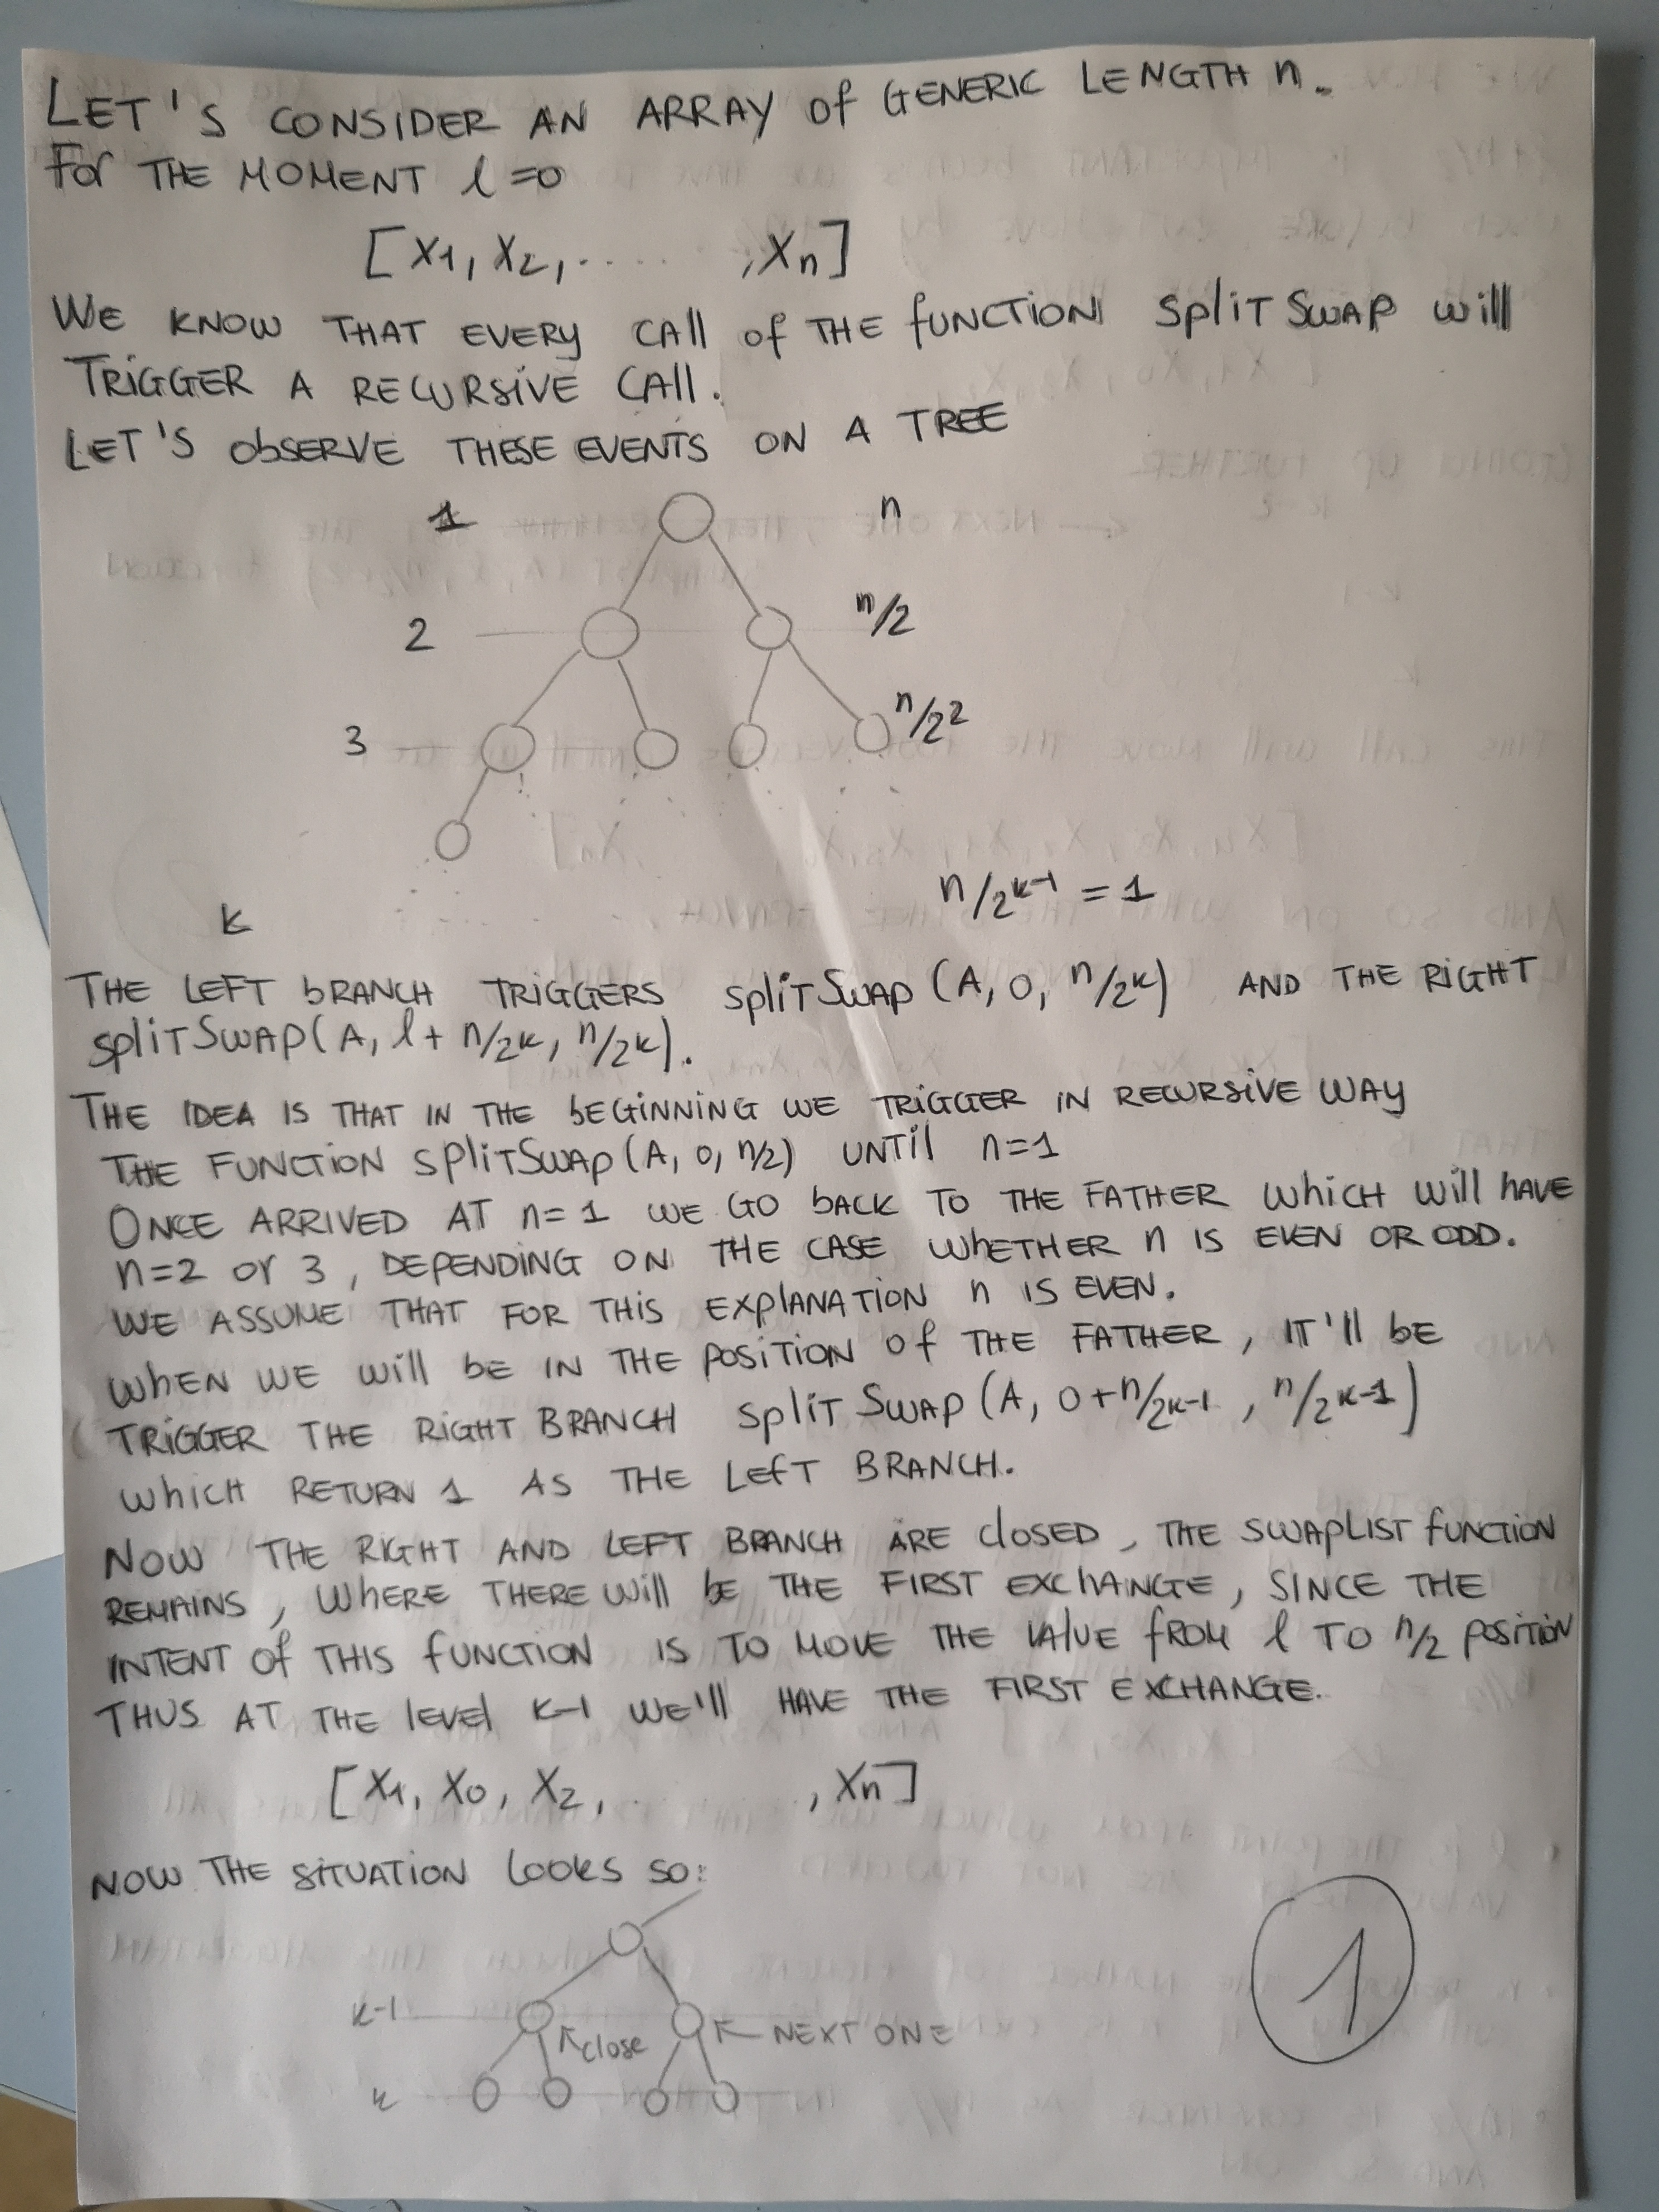 LET'S CONSIDER AN ARRAY of GENERIC LENGTH n.
For THE MOMENT l=0
[X1, X2, ..... , Xn]
WE KNOW THAT EVERY CAll of THE fUNCTION SplitSWAP will
TRIGGER A RECURSIVE CAll.
LET'S ObSERVE THESE EVENTS ON A TREE
1 n
2 n/2
3 n/2²
n/2^k-1 = 1
k
THE LEFT bRANCH TRIGGERS splitSwAp (A, 0, n/2^k) AND THE RIGHT
splitSwAP(A, l + n/2^k, n/2^k).
THE IDEA IS THAT IN THE bEGINNING WE TRIGGER IN RECURSIVE WAY
THE FUNCTION SplitSwAp (A, 0, n/2) UNTil n=1
ONCE ARRIVED AT n=1 WE GO bACK TO THE FATHER WhiCH Will hAVE
n=2 or 3, DEPENDING ON THE CASE WhETHER n IS EVEN OR ODD.
WE ASSUME THAT FOR THIS EXplANATION n IS EVEN.
WhEN WE will bE IN THE pOSITION of THE FATHER, IT'll bE
TRIGGER THE RIGHT BRANCH split SwAp (A, 0+n/2^k-1, n/2^k-1)
which RETURN 1 AS THE LEfT BRANCH.
NOW THE RIGHT AND LEFT BRANCH ARE closED, THE SWAPLIST fUNCTION
REMAINS, WhERE THERE Will bE THE FIRST EXChANGE, SINCE THE
INTENT of THIS fUNCTION IS TO MOVE THE VAlUE fROM l TO n/2 pOSITION
THUS AT THE level K-1 WE'll HAVE THE FIRST EXCHANGE.
[X1, X0, X2, . , Xn]
NOW THE SITUATION LOOKS SO:
k-1 close NEXT ONE
k
1